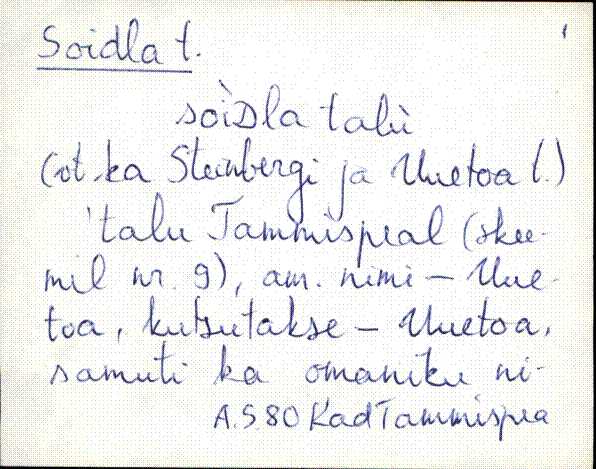 Soidla t.
soìᴅla talu̇̀
(vt. ka Steinbergi ja Uuetoa t.)
'talu Tammispeal (skee-
mil nr. 9), am. nimi – Uue-
toa, kutsutakse – Uuetoa,
samuti ka omaniku ni-
A.S.80 Kad Tammispea